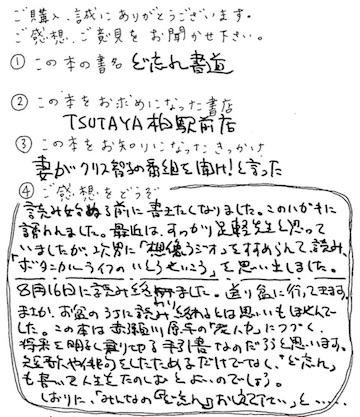 ご購入、誠にありがとうございます。
ご感想、ご意見をお聞かせ下さい。
① この本の書名 ど忘れ書道
② この本をお求めになった書店
TSUTAYA 柏駅前店
③ この本をお知りになったきっかけ
妻がクリス智子の番組を聞け！と言った
④ ご感想をどうぞ
読み始める前に書きたくなりました。このハガキに
誘れんました。最近は、すっかり足軽先生と思って
いましたが、次男に「想像ラジオ」をすすめらんて、読み、
「ボタニカル・ライフのいとうせいこう」を思い出しました。
8月16日に読み終りました。送り盆に行って来ます。
まさか、お盆のうちに読み終わるとは思いもほどんでし
した。この本は赤瀬川原平の「老人力」につづく、
将来を明るく乗りせる手引書なのだろうと思います。
短歌や俳句をしたためるだけでなく、"ど忘れ"
も書いて人生をたのしむとよいのでしょう。
しおりに、「みんなのど忘れ」おしえて下さい」と……